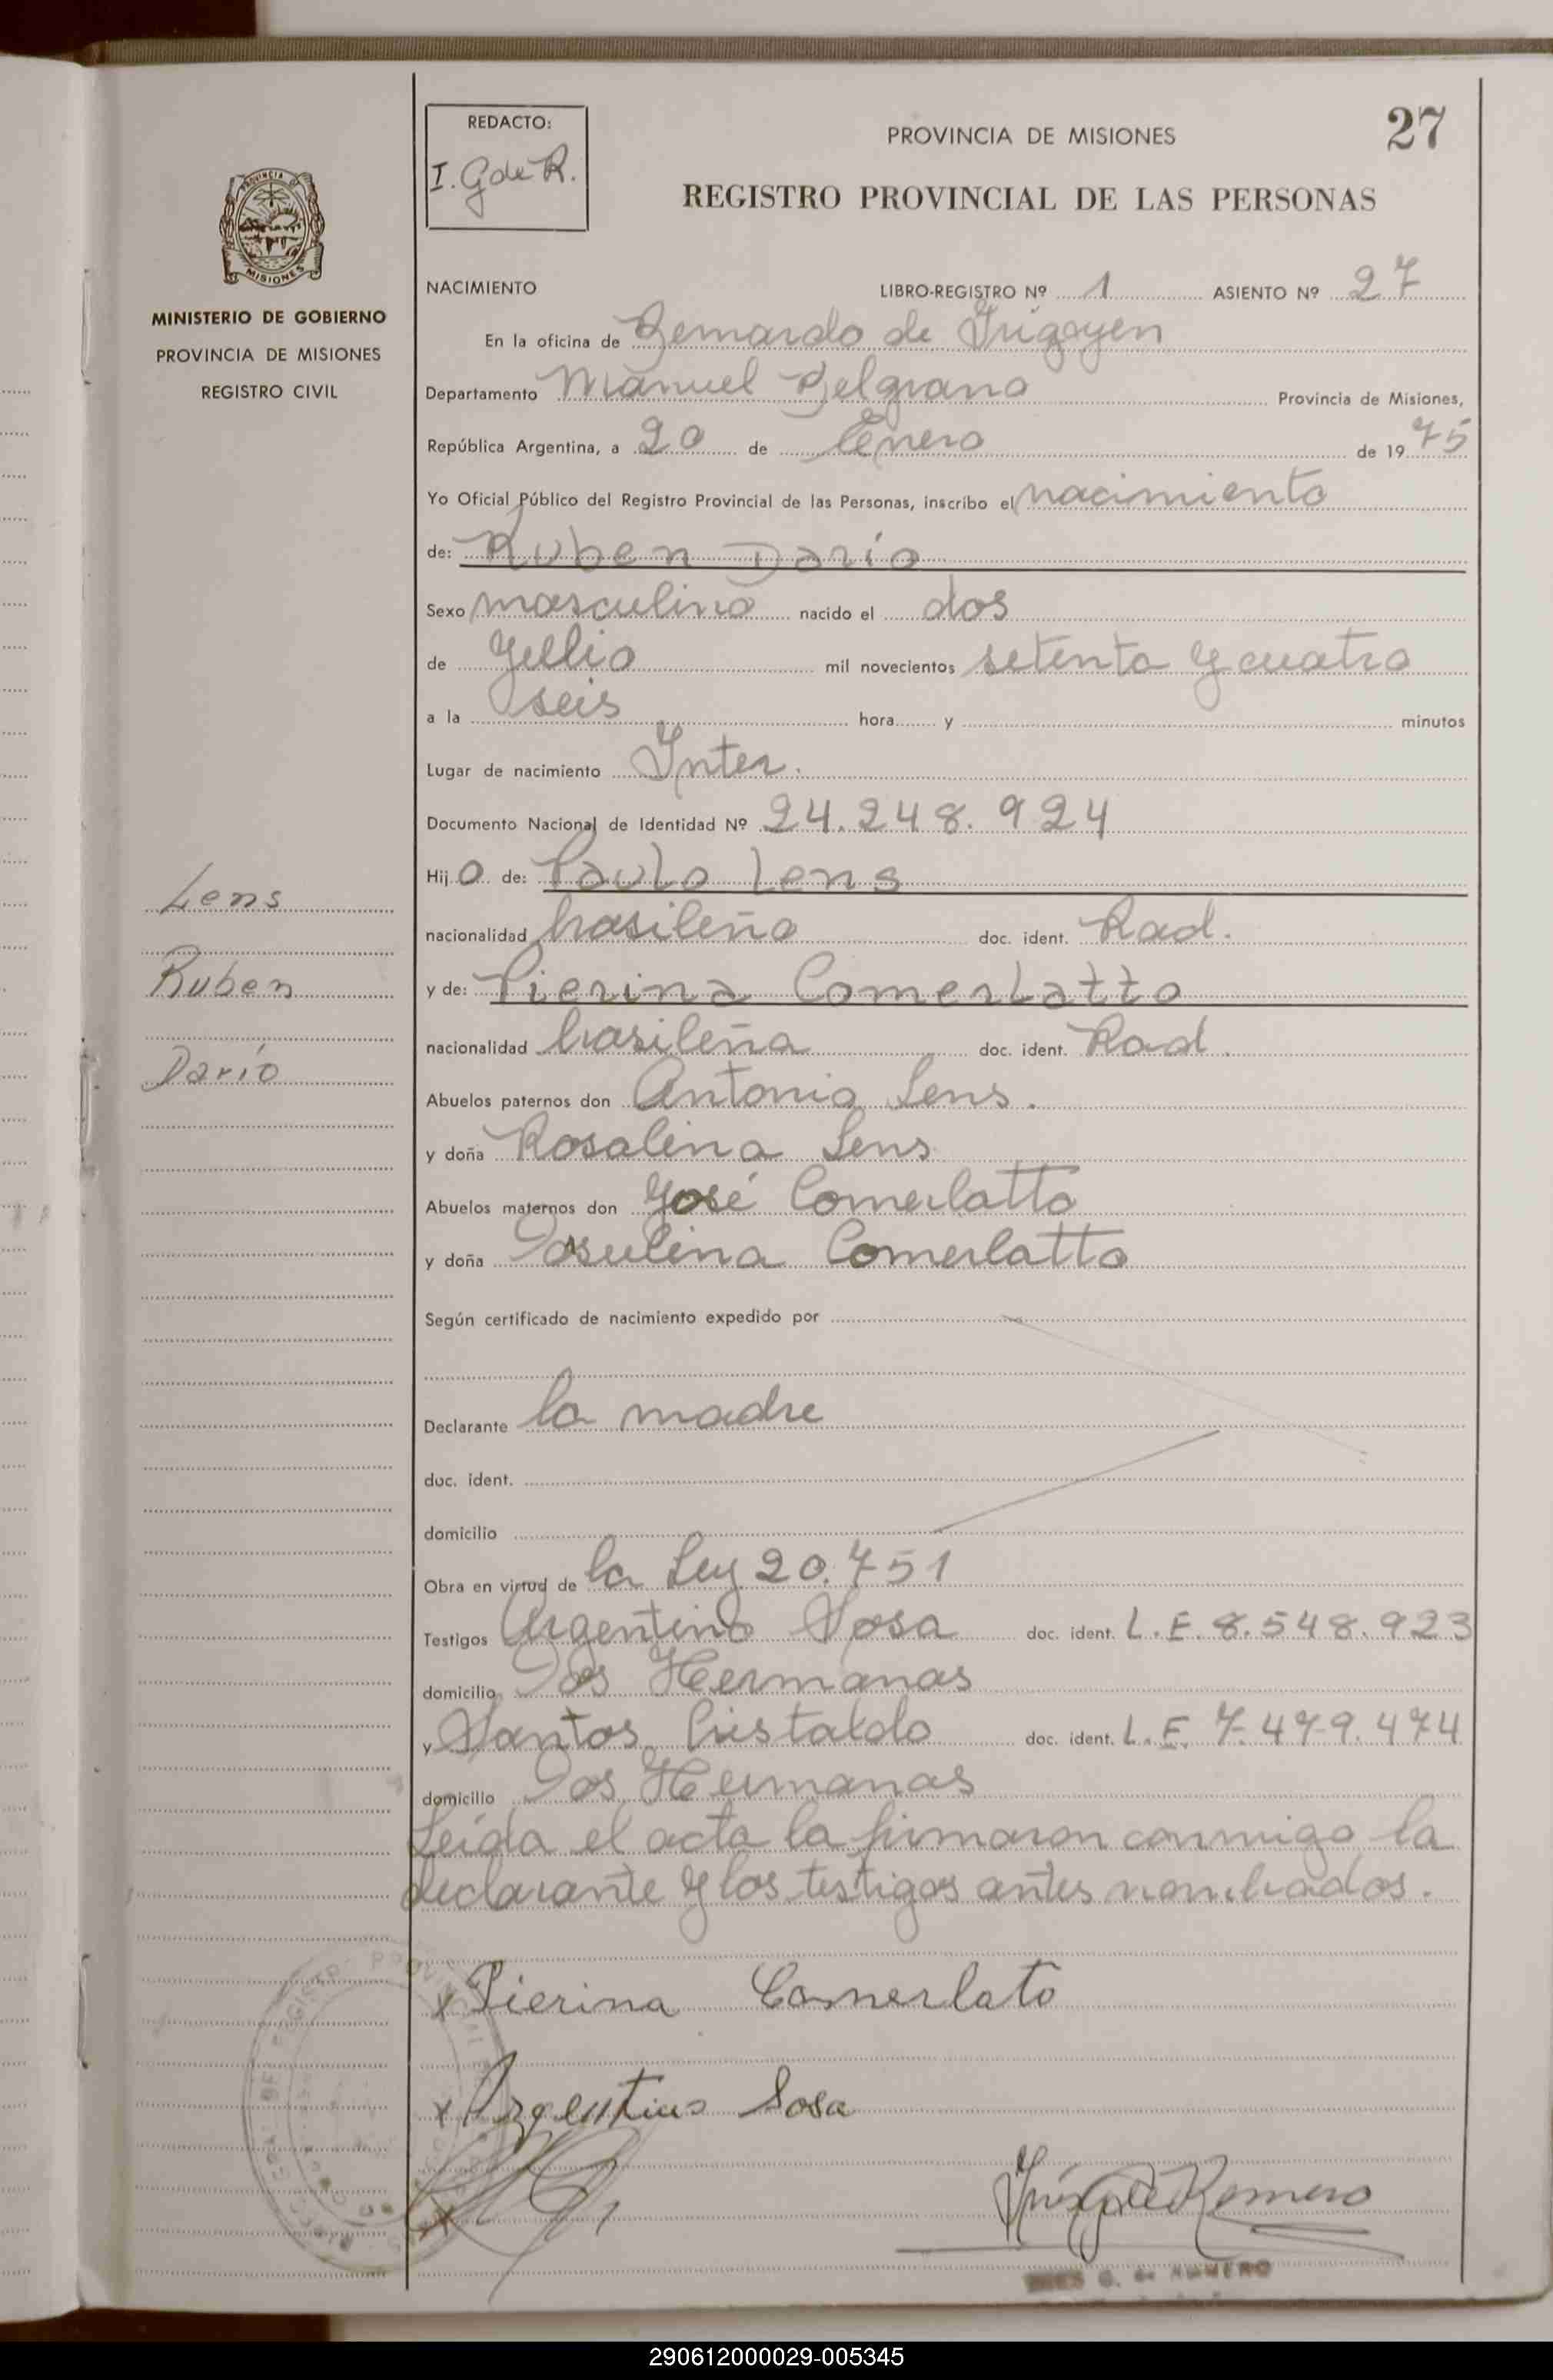 27
REDACTO:
I. G de R.
PROVINCIA DE MISIONES
REGISTRO PROVINCIAL DE LAS PERSONAS
MISIONES
MINISTERIO DE GOBIERNO
PROVINCIA DE MISIONES
REGISTRO CIVIL
NACIMIENTO LIBRO-REGISTRO Nº 1 ASIENTO Nº 27
En la oficina de Bernardo de Irigoyen
Departamento Manuel Belgrano Provincia de Misiones,
República Argentina, a 20 de Enero de 1975
Yo Oficial Público del Registro Provincial de las Personas, inscribo el nacimiento
de: Ruben Darío
Sexo masculino nacido el dos
de Julio mil novecientos setenta y cuatro
a la seis hora y minutos
Lugar de nacimiento Inter.
Documento Nacional de Identidad Nº 24.248.924
Hijo de: Paulo Lens
Lens
nacionalidad brasileño doc. ident. Rad.
Ruben
y de: Pierina Comerlatto
nacionalidad brasileña doc. ident. Rad.
Darío
Abuelos paternos don Antonio Lens.
y doña Rosalina Lens
Abuelos maternos don José Comerlatto
y doña Comerlatto
Según certificado de nacimiento expedido por
Declarante la madre
doc. ident.
domicilio
Obra en virtud de la Ley 20.751
Testigos Argentino Sosa doc. ident. L.E. 8.548.923
domicilio Dos Hermanas
y Santos Cristaldo doc. ident. L.E. 7.479.474
domicilio Dos Hermanas
Leída el acta la firmaron conmigo la
declarante y los testigos antes nombrados.
x Pierina Comerlato
x Argentino Sosa
x
Inés G de Romero
INES G. de ROMERO
290612000029-005345